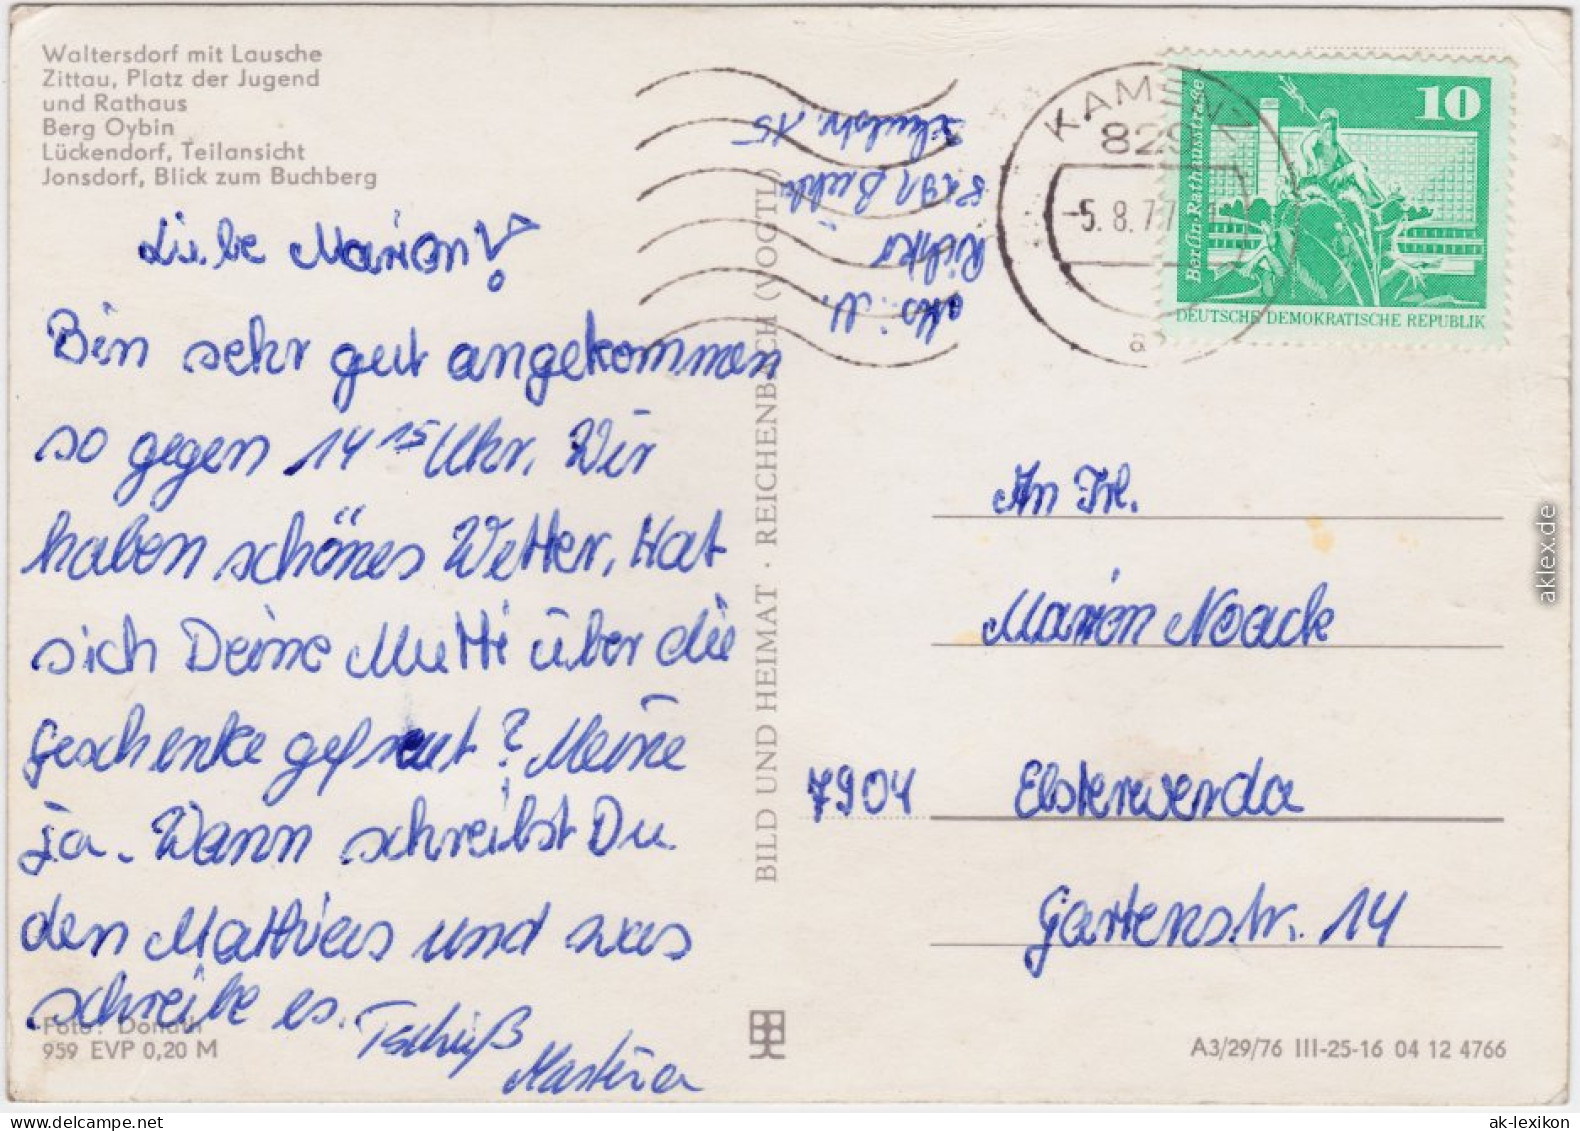 Waltersdorf mit Lausche
Zittau, Platz der Jugend
und Rathaus
Berg Oybin
Lückendorf, Teilansicht
Jonsdorf, Blick zum Buchberg
Liebe Marion!
Bin sehr gut angekommen
so gegen 14 15 Uhr. Wir
haben schönes Wetter. Hat
sich Deine Mutti über die
Geschenke gefreut? Meine
ja. Wann schreibst Du
den Mathias und was
schreibe es. Tschüß
Martina
Foto: Donath
959 EVP 0,20 M
BILD UND HEIMAT · REICHENBACH (VOGTL)
Abs.: M.
Richter
8291
Schulstr. 15
KAMENZ
829
-5. 8. 77
a
10
Berlin · Rathausstraße
DEUTSCHE DEMOKRATISCHE REPUBLIK
An Frl.
Marion Noack
7904 Elsterwerda
Gartenstr. 14
A3/29/76 III-25-16 04 12 4766
aklex.de
ak-lexikon